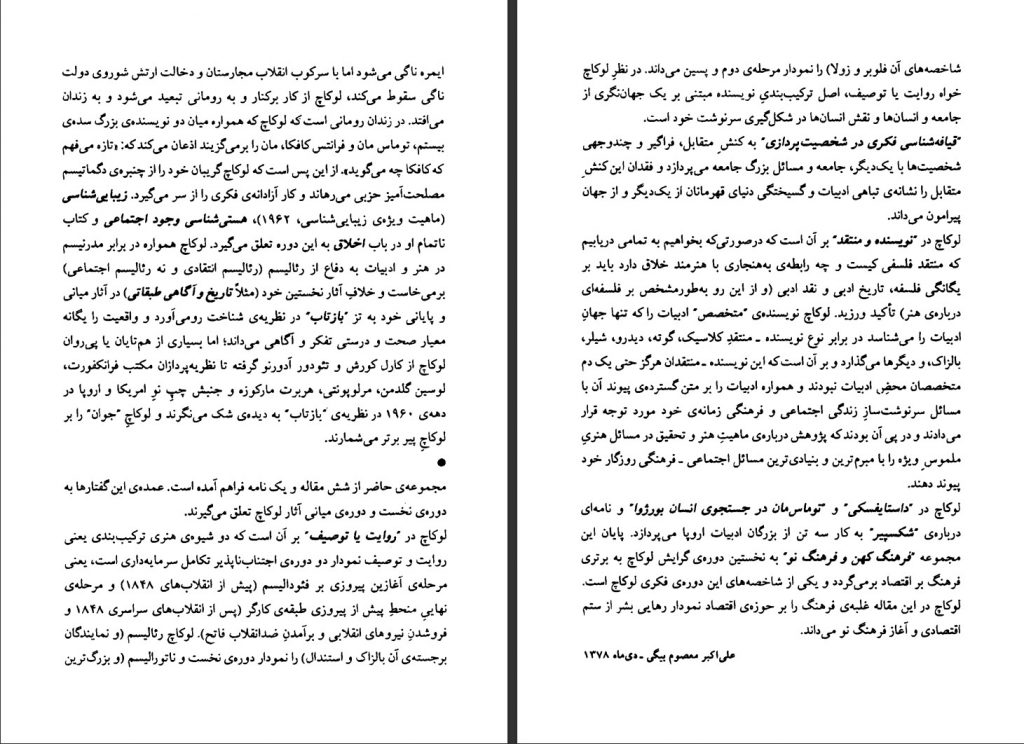 ایمره ناگی می‌شود اما با سرکوب انقلاب مجارستان و دخالت ارتش شوروی دولت
ناگی سقوط می‌کند، لوکاچ از کار برکنار و به رومانی تبعید می‌شود و به زندان
می‌افتد. در زندان رومانی است که لوکاچ که همواره میان دو نویسنده‌ی بزرگ سده‌ی
بیستم، توماس مان و فرانتس کافکا، مان را برمی‌گزیند اذعان می‌کند که: «تازه می‌فهم
که کافکا چه می‌گوید». از این پس است که لوکاچ گریبان خود را از چنبره‌ی دگماتیسم
مصلحت‌آمیز حزبی می‌رهاند و کار آزادانه‌ی فکری را از سر می‌گیرد. زیبایی‌شناسی
(ماهیت ویژه‌ی زیبایی‌شناسی، ۱۹۶۲)، هستی‌شناسی وجود اجتماعی و کتاب
ناتمام او در باب اخلاق به این دوره تعلق می‌گیرد. لوکاچ همواره در برابر مدرنیسم
در هنر و ادبیات به دفاع از رئالیسم (رئالیسم انتقادی و نه رئالیسم اجتماعی)
برمی‌خاست و خلافِ آثار نخستین خود (مثلاً تاریخ و آگاهی طبقاتی) در آثار میانی
و پایانی خود به تز "بازتاب" در نظریه‌ی شناخت رومی‌آورد و واقعیت را یگانه
معیار صحت و درستی تفکر و آگاهی می‌داند؛ اما بسیاری از هم‌تایان یا پی‌روان
لوکاچ از کارل کورش و تئودور آدورنو گرفته تا نظریه‌پردازان مکتب فرانکفورت،
لوسین گلدمن، مرلوپونتی، هربرت مارکوزه و جنبش چپِ نوِ امریکا و اروپا در
دهه‌ی ۱۹۶۰ در نظریه‌ی "بازتاب" به دیده‌ی شک می‌نگرند و لوکاچِ "جوان" را بر
لوکاچ پیر برتر می‌شمارند.
●
مجموعه‌ی حاضر از شش مقاله و یک نامه فراهم آمده است. عمده‌ی این گفتارها به
دوره‌ی نخست و دوره‌ی میانی آثار لوکاچ تعلق می‌گیرند.
لوکاچ در "روایت یا توصیف" بر آن است که دو شیوه‌ی هنری ترکیب‌بندی یعنی
روایت و توصیف نمودار دو دوره‌ی اجتناب‌ناپذیر تکامل سرمایه‌داری است، یعنی
مرحله‌ی آغازین پیروزی بر فئودالیسم (پیش از انقلاب‌های ۱۸۴۸) و مرحله‌ی
نهاییِ منحطِ پیش از پیروزی طبقه‌ی کارگر (پس از انقلاب‌های سراسری ۱۸۴۸ و
فروشدنِ نیروهای انقلابی و برآمدنِ ضدانقلاب فاتح). لوکاچ رئالیسم (و نمایندگان
برجسته‌ی آن بالزاک و استندال) را نمودار دوره‌ی نخست و ناتورالیسم (و بزرگ‌ترین
شاخصه‌های آن فلوبر و زولا) را نمودار مرحله‌ی دوم و پسین می‌داند. در نظرِ لوکاچ
خواه روایت یا توصیف، اصل ترکیب‌بندیِ نویسنده مبتنی بر یک جهان‌نگری از
جامعه و انسان‌ها و نقش انسان‌ها در شکل‌گیری سرنوشت خود است.
"قیافه‌شناسی فکری در شخصیت‌پردازی" به کنشِ متقابل، فراگیر و چندوجهی
شخصیت‌ها با یک‌دیگر، جامعه و مسائل بزرگ جامعه می‌پردازد و فقدان این کنشِ
متقابل را نشانه‌ی تباهی ادبیات و گسیختگی دنیای قهرمانان از یک‌دیگر و از جهان
پیرامون می‌داند.
لوکاچ در "نویسنده و منتقد" بر آن است که درصورتی‌که بخواهیم به تمامی دریابیم
که منتقد فلسفی کیست و چه رابطه‌ی به‌هنجاری با هنرمند خلاق دارد باید بر
یگانگی فلسفه، تاریخ ادبی و نقد ادبی (و از این رو به‌طورمشخص بر فلسفه‌ای
درباره‌ی هنر) تأکید ورزید. لوکاچ نویسنده‌ی "متخصص" ادبیات را که تنها جهانِ
ادبیات را می‌شناسد در برابر نوع نویسنده ـ منتقدِ کلاسیک، گوته، دیدرو، شیلر،
بالزاک، و دیگرها می‌گذارد و بر آن است که این نویسنده ـ منتقدان هرگز حتی یک دم
متخصصان محضِ ادبیات نبودند و همواره ادبیات را بر متن گسترده‌ی پیوند آن با
مسائل سرنوشت‌سازِ زندگی اجتماعی و فرهنگی زمانه‌ی خود مورد توجه قرار
می‌دادند و در پی آن بودند که پژوهش درباره‌ی ماهیتِ هنر و تحقیق در مسائل هنریِ
ملموسِ ویژه را با مبرم‌ترین و بنیادی‌ترین مسائل اجتماعی ـ فرهنگی روزگار خود
پیوند دهند.
لوکاچ در "داستایفسکی" و "توماس‌مان در جستجوی انسان بورژوا" و نامه‌ای
درباره‌ی "شکسپیر" به کار سه تن از بزرگان ادبیات اروپا می‌پردازد. پایان این
مجموعه "فرهنگ کهن و فرهنگ نو" به نخستین دوره‌ی گرایش لوکاچ به برتری
فرهنگ بر اقتصاد برمی‌گردد و یکی از شاخصه‌های این دوره‌ی فکری لوکاچ است.
لوکاچ در این مقاله غلبه‌ی فرهنگ را بر حوزه‌ی اقتصاد نمودار رهایی بشر از ستم
اقتصادی و آغاز فرهنگ نو می‌داند.
علی‌اکبر معصوم بیگی ـ دی‌ماه ۱۳۷۸